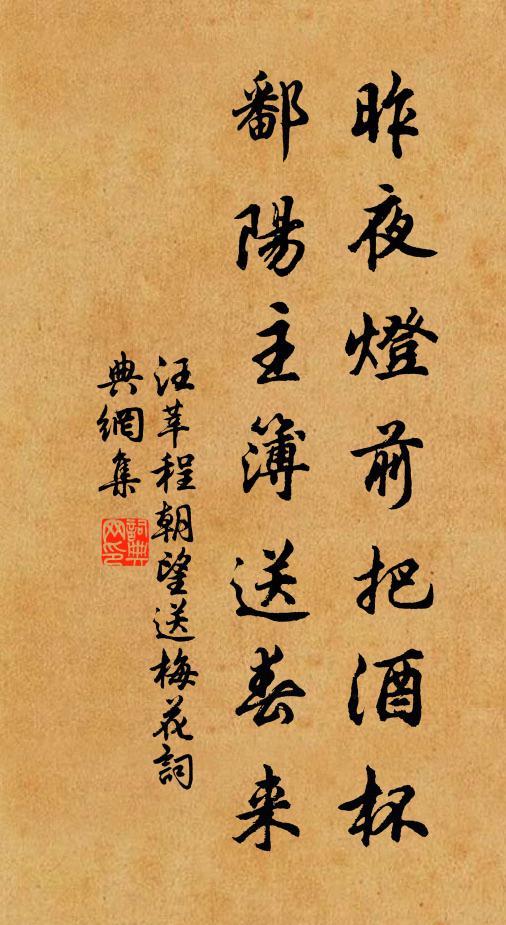 昨夜燈前把酒杯
鄱陽主簿送春来
汪莘程朝望送梅花詞
典網集
詞典
网印